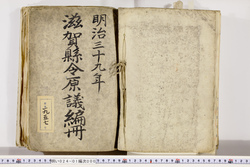 明治三十九年
滋賀縣令原議編冊